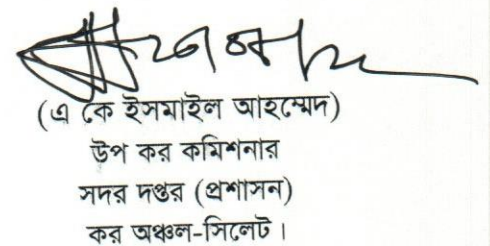 (এ কে ইসমাইল আহম্মেদ)
উপ কর কমিশনার
সদর দপ্তর (প্রশাসন)
কর অঞ্চল-সিলেট।